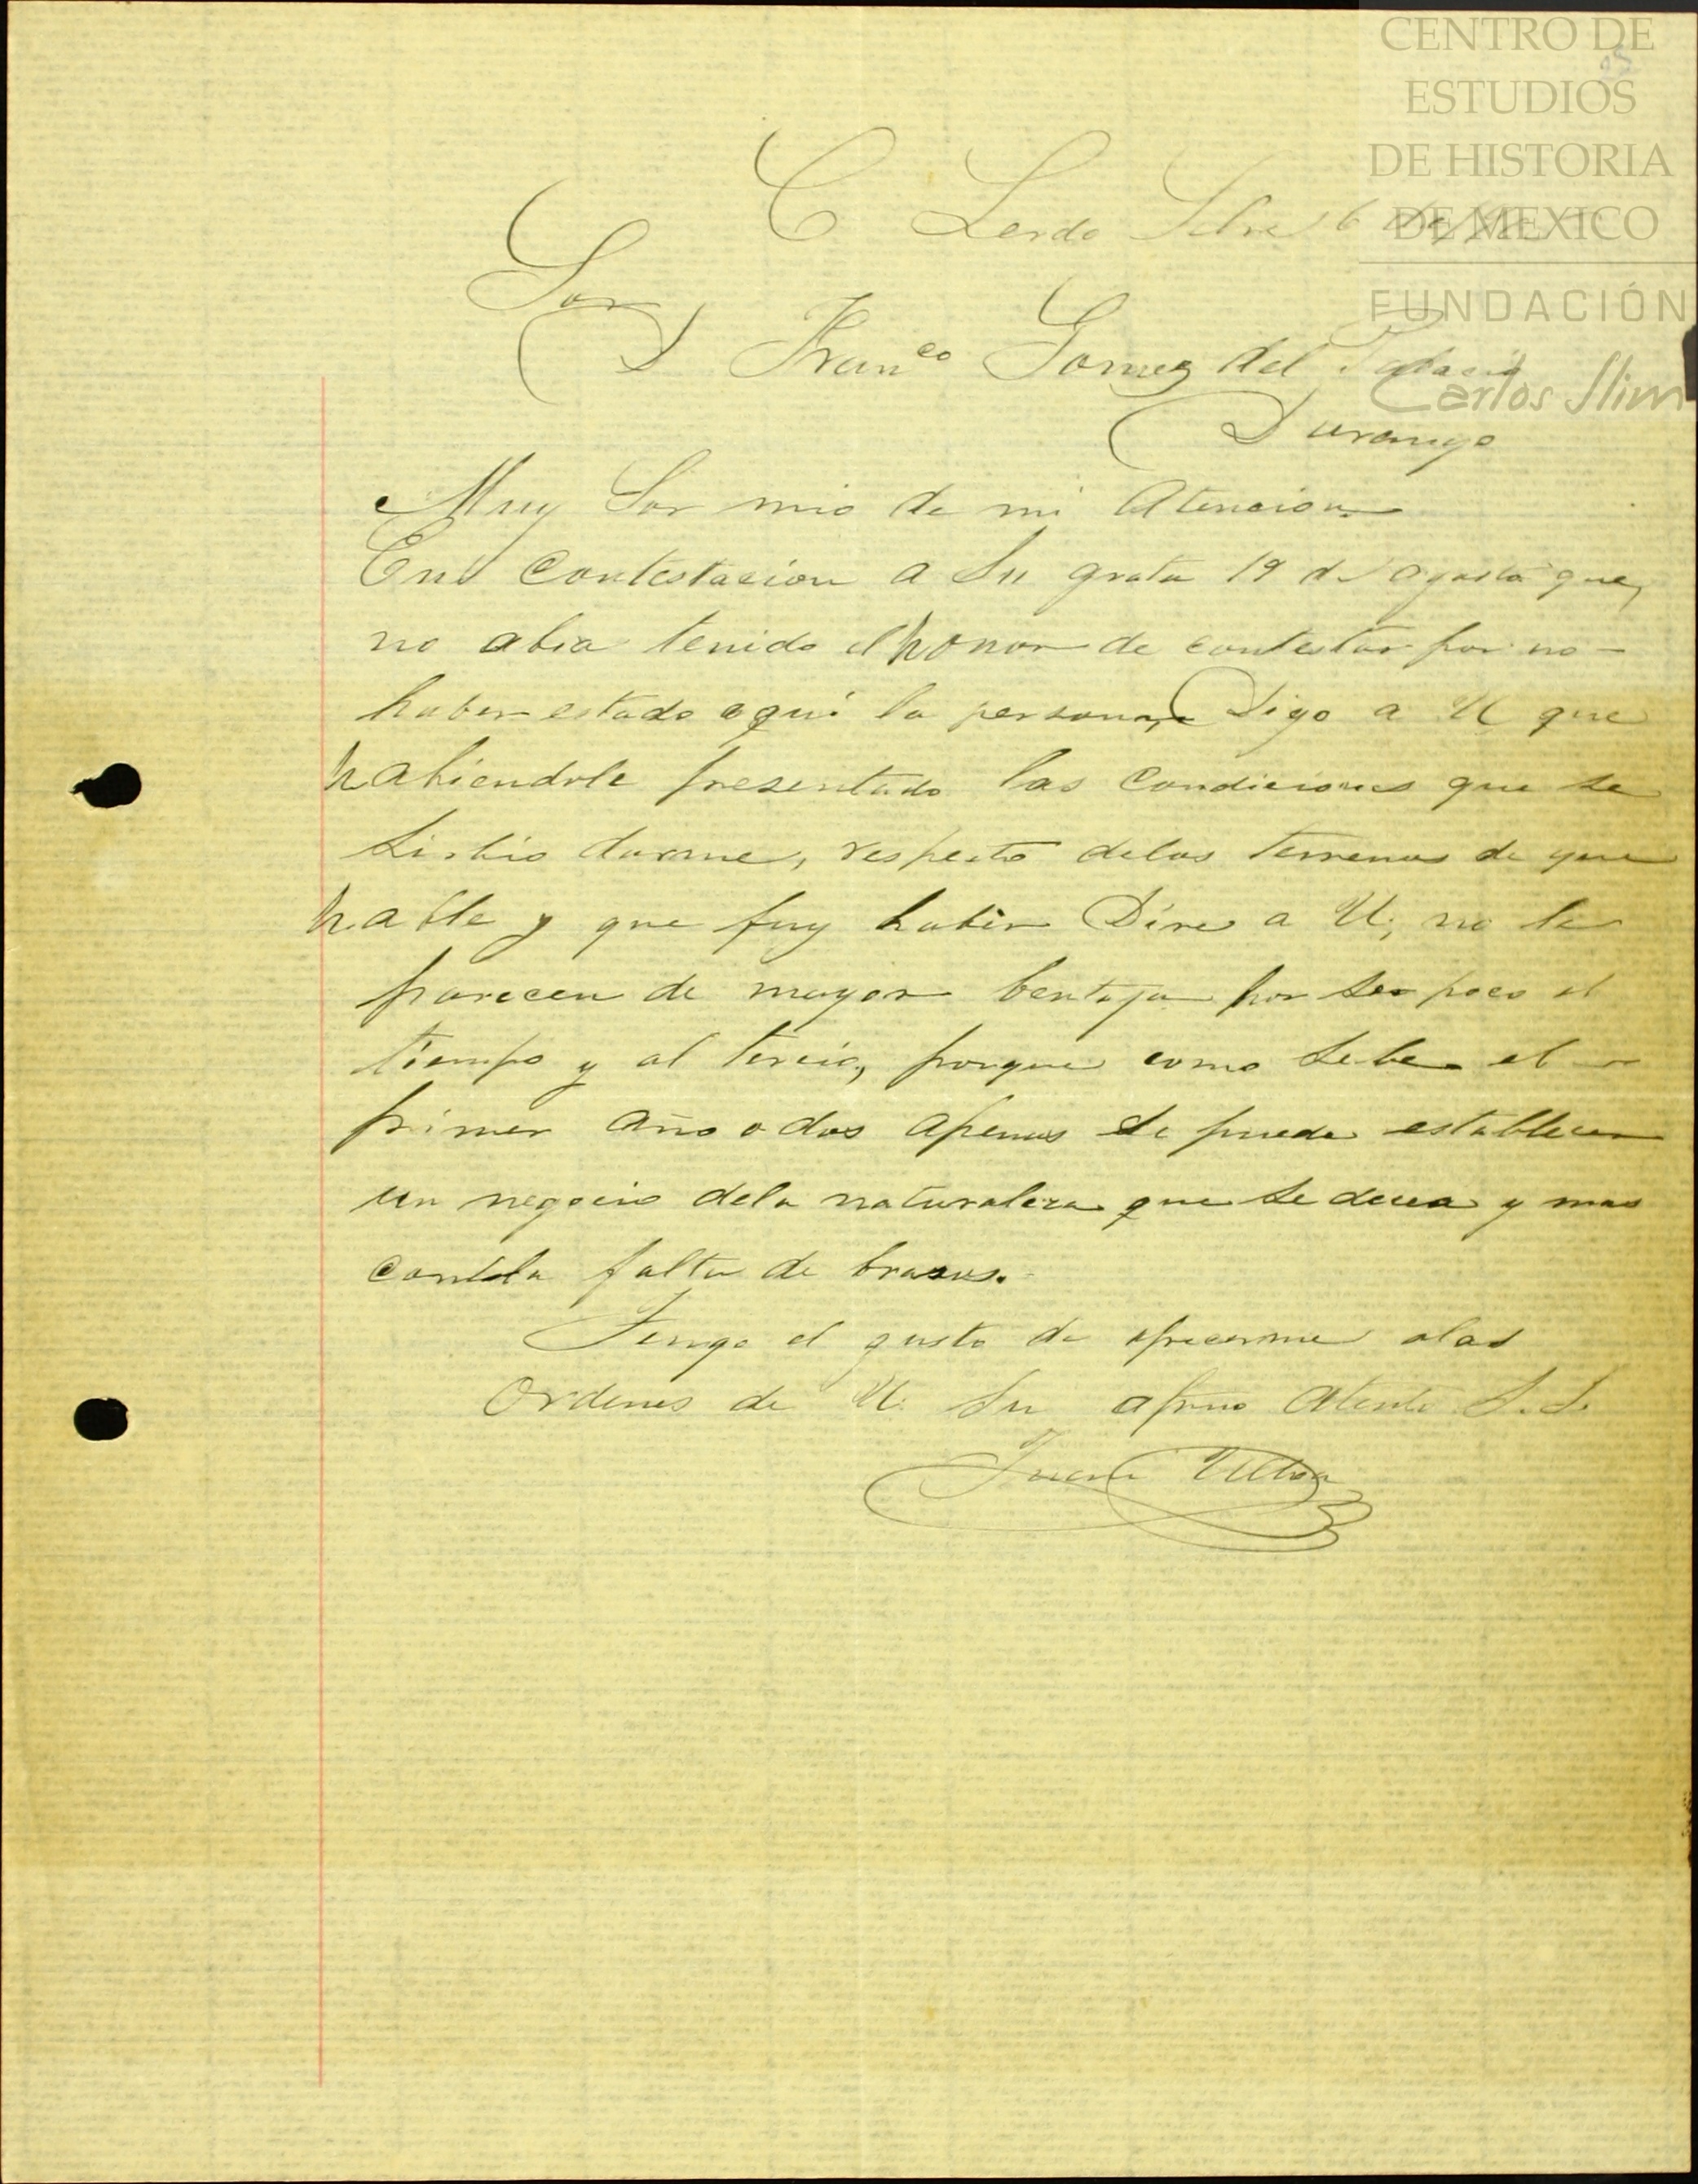 CENTRO DE
ESTUDIOS
DE HISTORIA
DE MEXICO
FUNDACIÓN
Carlos Slim
C Lerdo Sbre 6
Sor
D Franco Gomez del Palacio
Durango
Muy Sor mio de mi Atencion
En Contestacion a Su grata 19 de agosto que,
no abia tenido el honor de contestar por no
haber estado aqui la persona, Digo a U que
habiendole presentado las Condiciones que se
Sirbio darme, respecto delos terrenos de que
hable y que fuy haber Dire a U, no le
parecen de mayor bentaja por ser poco el
tiempo y al tercio, porque como Sabe el
primer año o dos apenas se puede establecer
un negocio dela naturaleza que se decea y mas
con la falta de brasos.
Tengo el gusto de ofrecerme alas
Ordenes de U. Su afmo Atento S. S.
Juan Ulloa